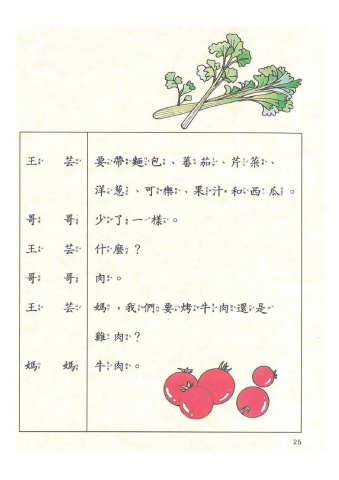 王芸 要帶麵包、蕃茄、芹菜、
洋蔥、可樂、果汁和西瓜。
哥哥 少了一樣。
王芸 什麼？
哥哥 肉。
王芸 媽，我們要烤牛肉還是
雞肉？
媽媽 牛肉。
25